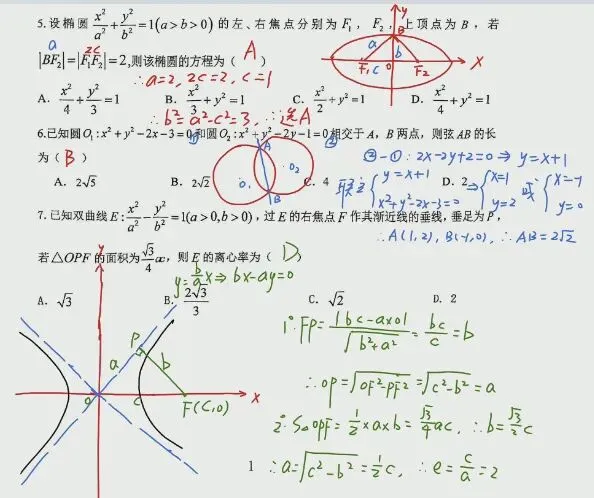 5.设椭圆x²/a²+y²/b²=1(a>b>0)的左、右焦点分别为F₁，F₂，上顶点为B，若
|BF₂|=|F₁F₂|=2,则该椭圆的方程为（ A ）
a 2c
∴a=2, 2c=2, c=1
A. x²/4+y²/3=1 B. x²/3+y²=1 C. x²/2+y²=1 D. x²/4+y²=1
∴b²=a²-c²=3, ∴选A
y B a b F₁ c O F₂ X
6.已知圆O₁:x²+y²-2x-3=0和圆O₂:x²+y²-2y-1=0相交于A，B两点，则弦AB的长
① ②
为（ B ）
A. 2√5 B. 2√2 C. 4 D. 2
A O₁ O₂ B
②-①: 2x-2y+2=0⇒y=x+1
联立{y=x+1 x²+y²-2x-3=0 ⇒{x=1 y=2 或{x=-1 y=0
∴A(1,2), B(-1,0), ∴AB=2√2
7.已知双曲线E:x²/a²-y²/b²=1(a>0,b>0)，过E的右焦点F作其渐近线的垂线，垂足为P，
若△OPF的面积为√3/4ac，则E的离心率为（ D ）
y=b/a x⇒bx-ay=0
A. √3 B. 2√3/3 C. √2 D. 2
y P a b O c F(C,0) x
1° FP=|bc-a×0|/√(b²+a²)=bc/c=b
∴OP=√(OF²-PF²)=√(c²-b²)=a
2° S△OPF=1/2×a×b=√3/4ac, ∴b=√3/2c
1
∴a=√(c²-b²)=1/2c, ∴e=c/a=2